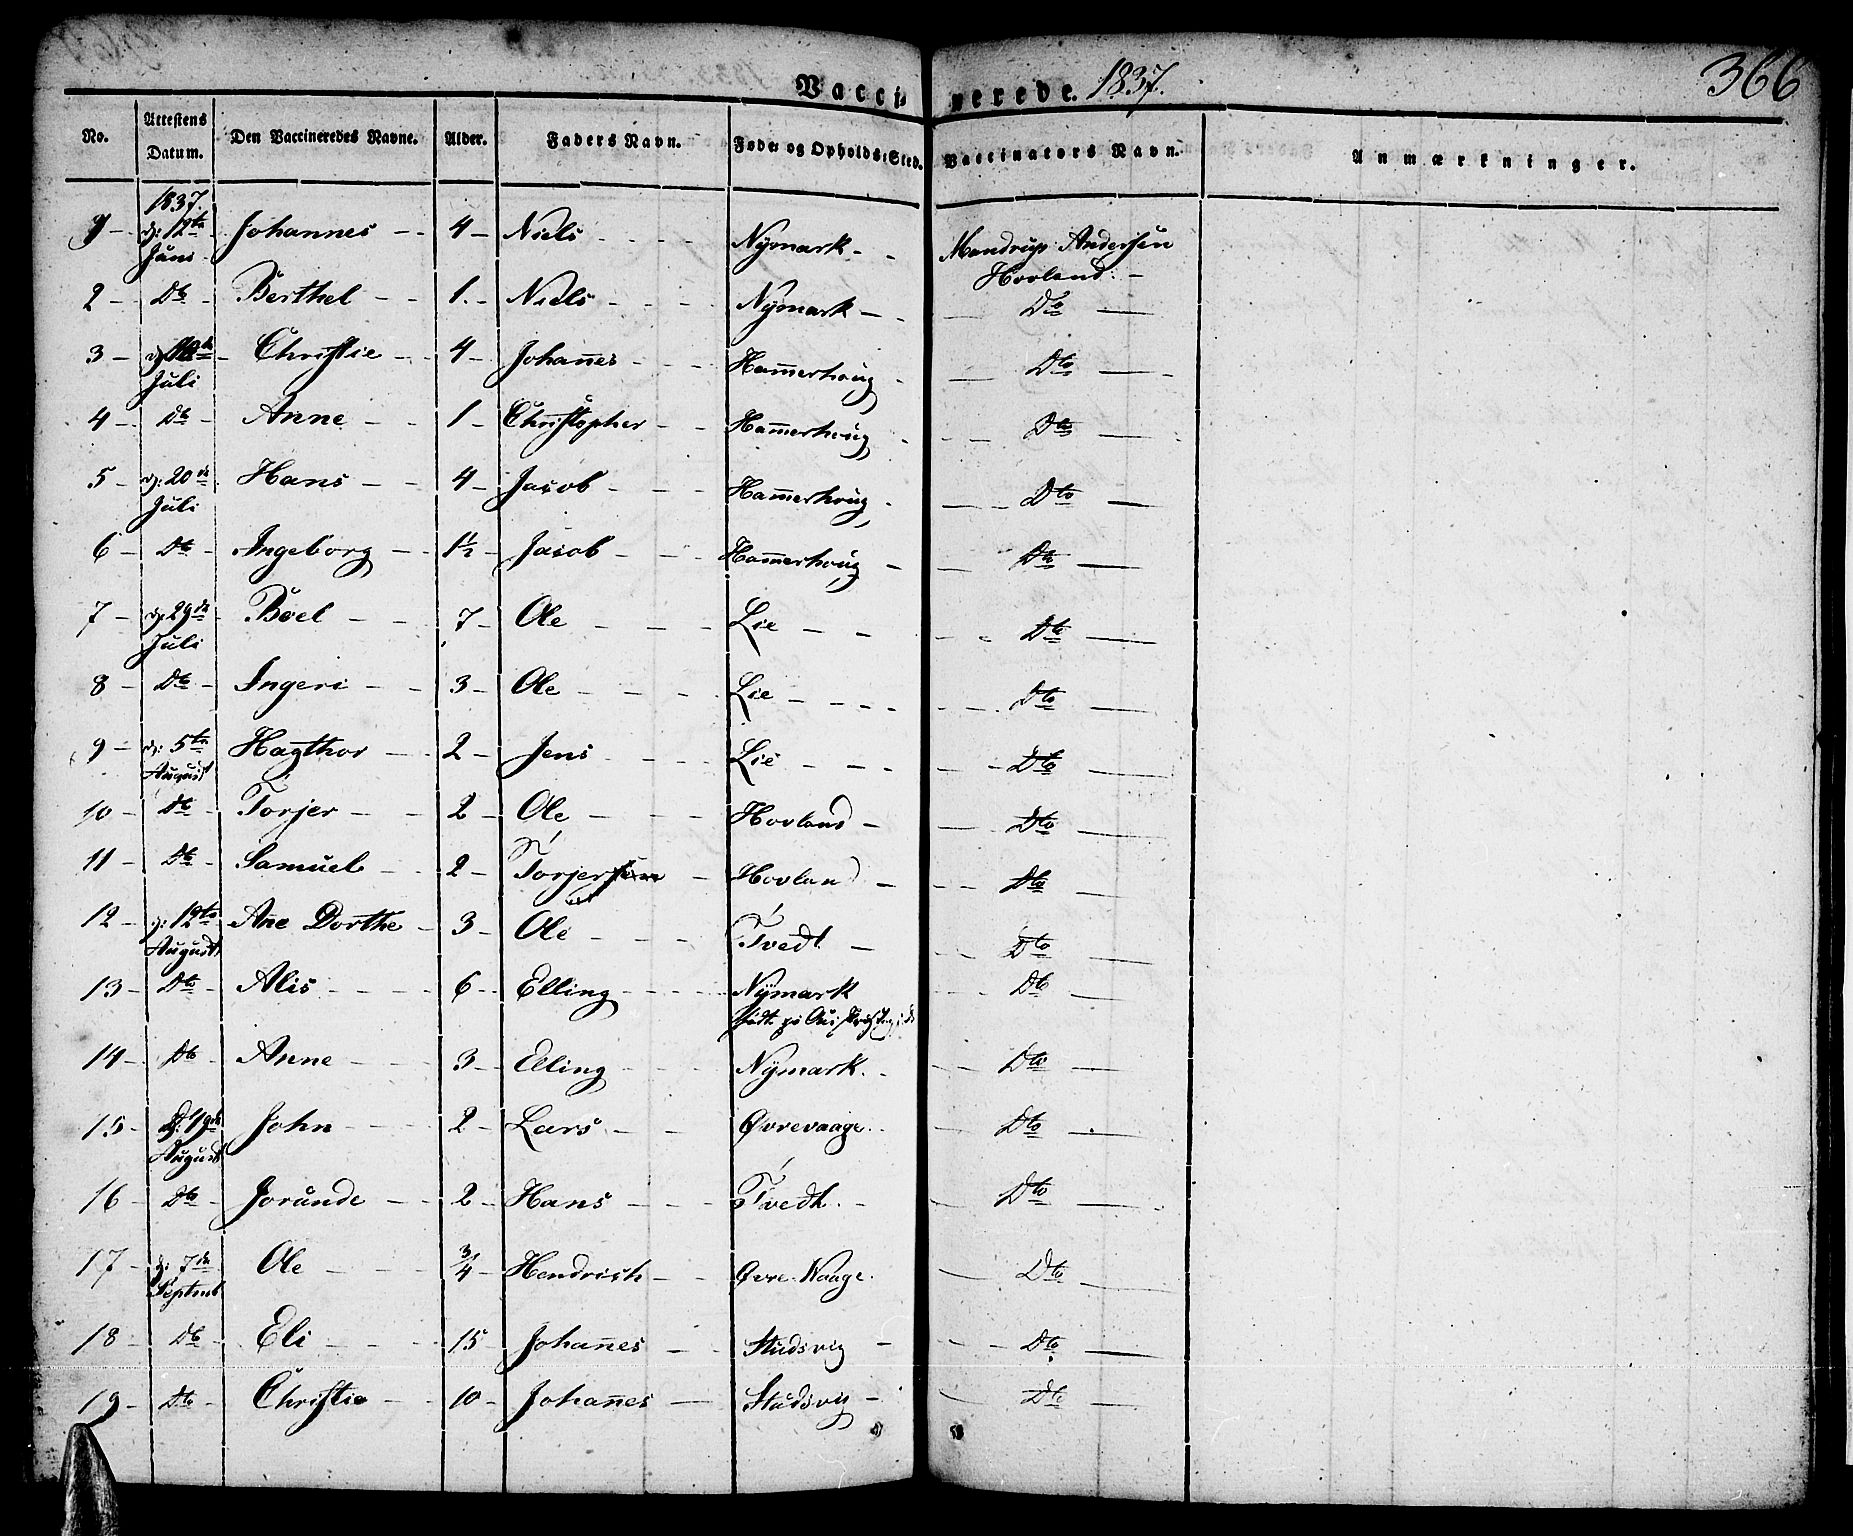 Vaccinerede. 1837. 366
No. Attestens Datum. Den Vaccineredes Navne. Alder. Faders Navn. Føde- og Opholds-Sted. Vaccinators Navn. Anmærkninger.
1837.
1 - d: 12te Juni - Johannes - 4 - Niels - Nymark - Mandrup Andersen Hovland. -
2 - Do - Berthel - 1. - Niels - Nymark - Dto
3 - Juli - Christie - 4 - Johan̄es - Ham̄erhoug - Dto
4 - Do - Anne - 1 - Christopher - Ham̄erhoug - Dto
5 - d: 20de Juli - Hans - 4 - Jacob - Ham̄erhoug - Dto
6 - Do - Ingeborg - 1½ - Jacob - Ham̄erhoug - Dto
7 - d: 29de Juli - Boel - 7 - Ole - Lie - Dto
8 - Do - Ingeri - 3 - Ole - Lie - Dto
9 - d: 5te August - Hagthor - 2 - Jens - Lie - Dto
10 - Do - Torjer - 2 - Ole - Hovland - Dto
11 - Do - Samuel - 2 - Torjer - Hovland - Dto
12 - d: 12te August - Ane Dorthe - 3 - Ole - Tvedt. - Dto
13 - Do - Alis - 6 - Elling - Nymark - Dto
født på
14 - Do - Anne - 3 - Elling - Nymark. - Dto
15 - D: 19de August - John - 2 - Lars - Øvrevaage. - Dto
16 - Do - Jorunde - 2 - Hans - Tvedt. - Dto
17 - d: 7de Septmb - Ole - 3/4 - Hendrich - Øvre Waage. - Dto
18 - Do - Eli - 15 - Johan̄es - Studsvig - Dto
19 - Do - Christie - 10 - Johan̄es - Studsvig - Dto